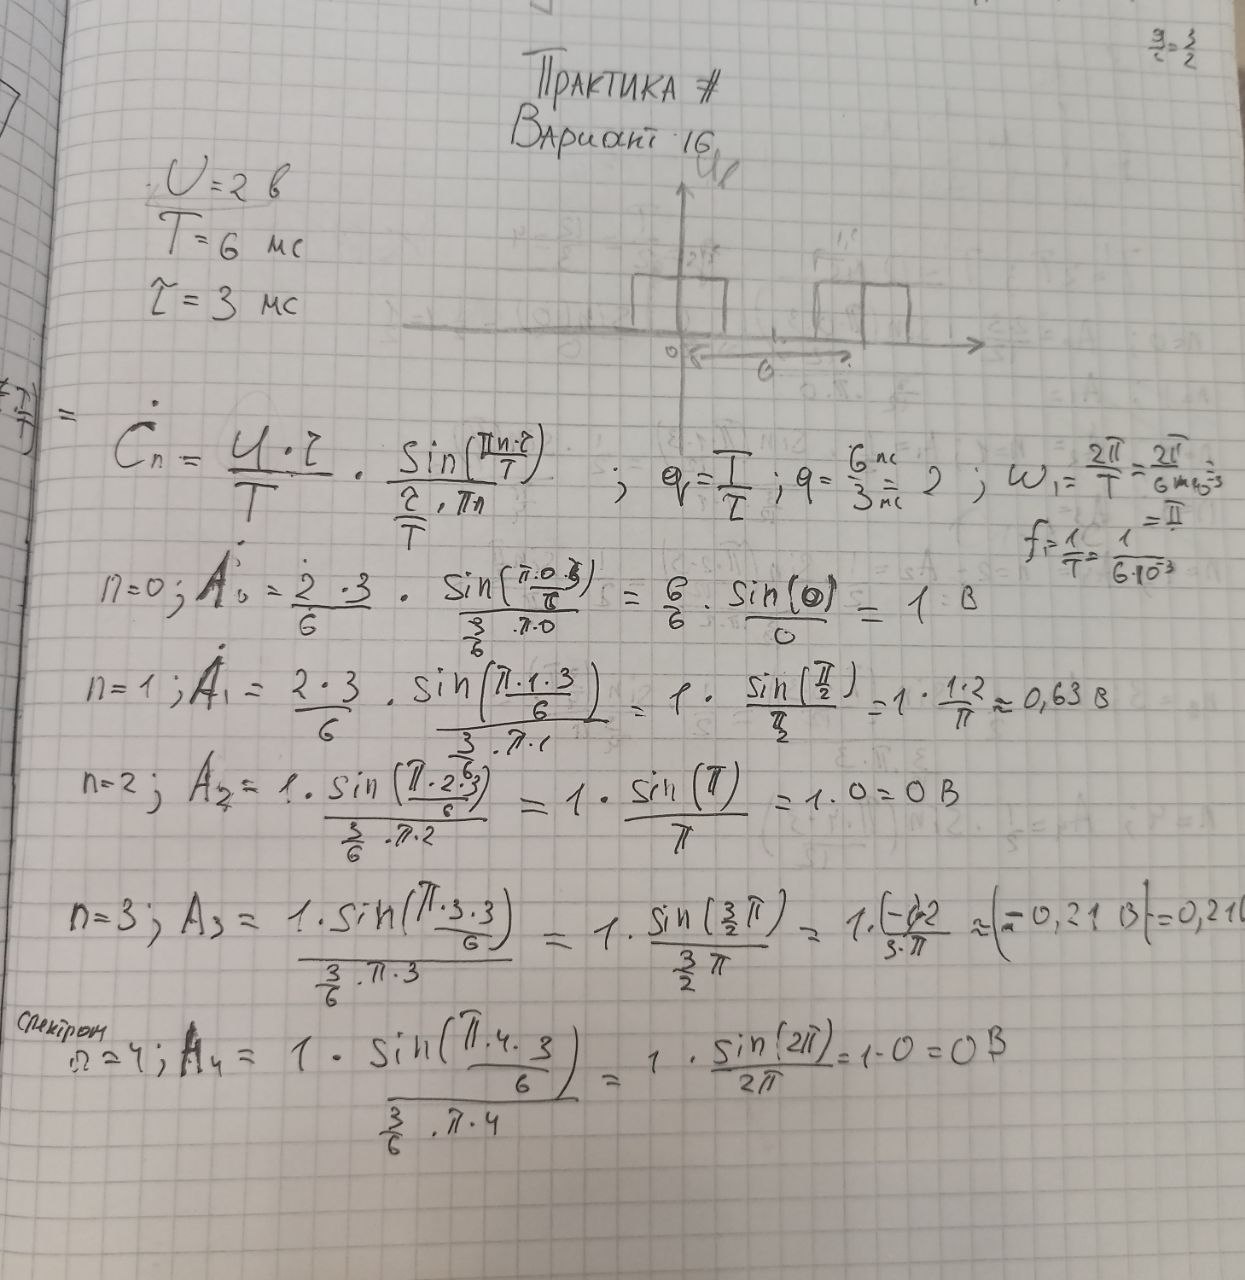 9/2 = 3/2
ПРАКТИКА #
ВАриант 16
U = 2 в
T = 6 мс
τ = 3 мс
0
6
Ċn = U·τ/T · sin(πn·τ/T)/(τ/T · πn) ; q = T/τ ; q = 6 мс/3 мс = 2 ; ω₁ = 2π/T =
f₁ = 1/T = 1/6·10⁻³
n=0; Ȧ₀ = 2·3/6 · sin(π·0·3/6)/(3/6 · π·0) = 6/6 · sin(0)/0 = 1 В
n=1; Ȧ₁ = 2·3/6 · sin(π·1·3/6)/(3/6 · π·1) = 1 · sin(π/2)/(π/2) = 1 · 1·2/π ≈ 0,63 В
n=2; A₂ = 1 · sin(π·2·3/6)/(3/6 · π·2) = 1 · sin(π)/π = 1·0 = 0 В
n=3; A₃ = 1·sin(π·3·3/6)/(3/6 · π·3) = 1 · sin(3/2 π)/(3/2 π) = 1·(-1)·2/3·π ≈ |-0,21 В| = 0,21
n=4; A₄ = 1 · sin(π·4·3/6)/(3/6 · π·4) = 1 · sin(2π)/2π = 1·0 = 0 В